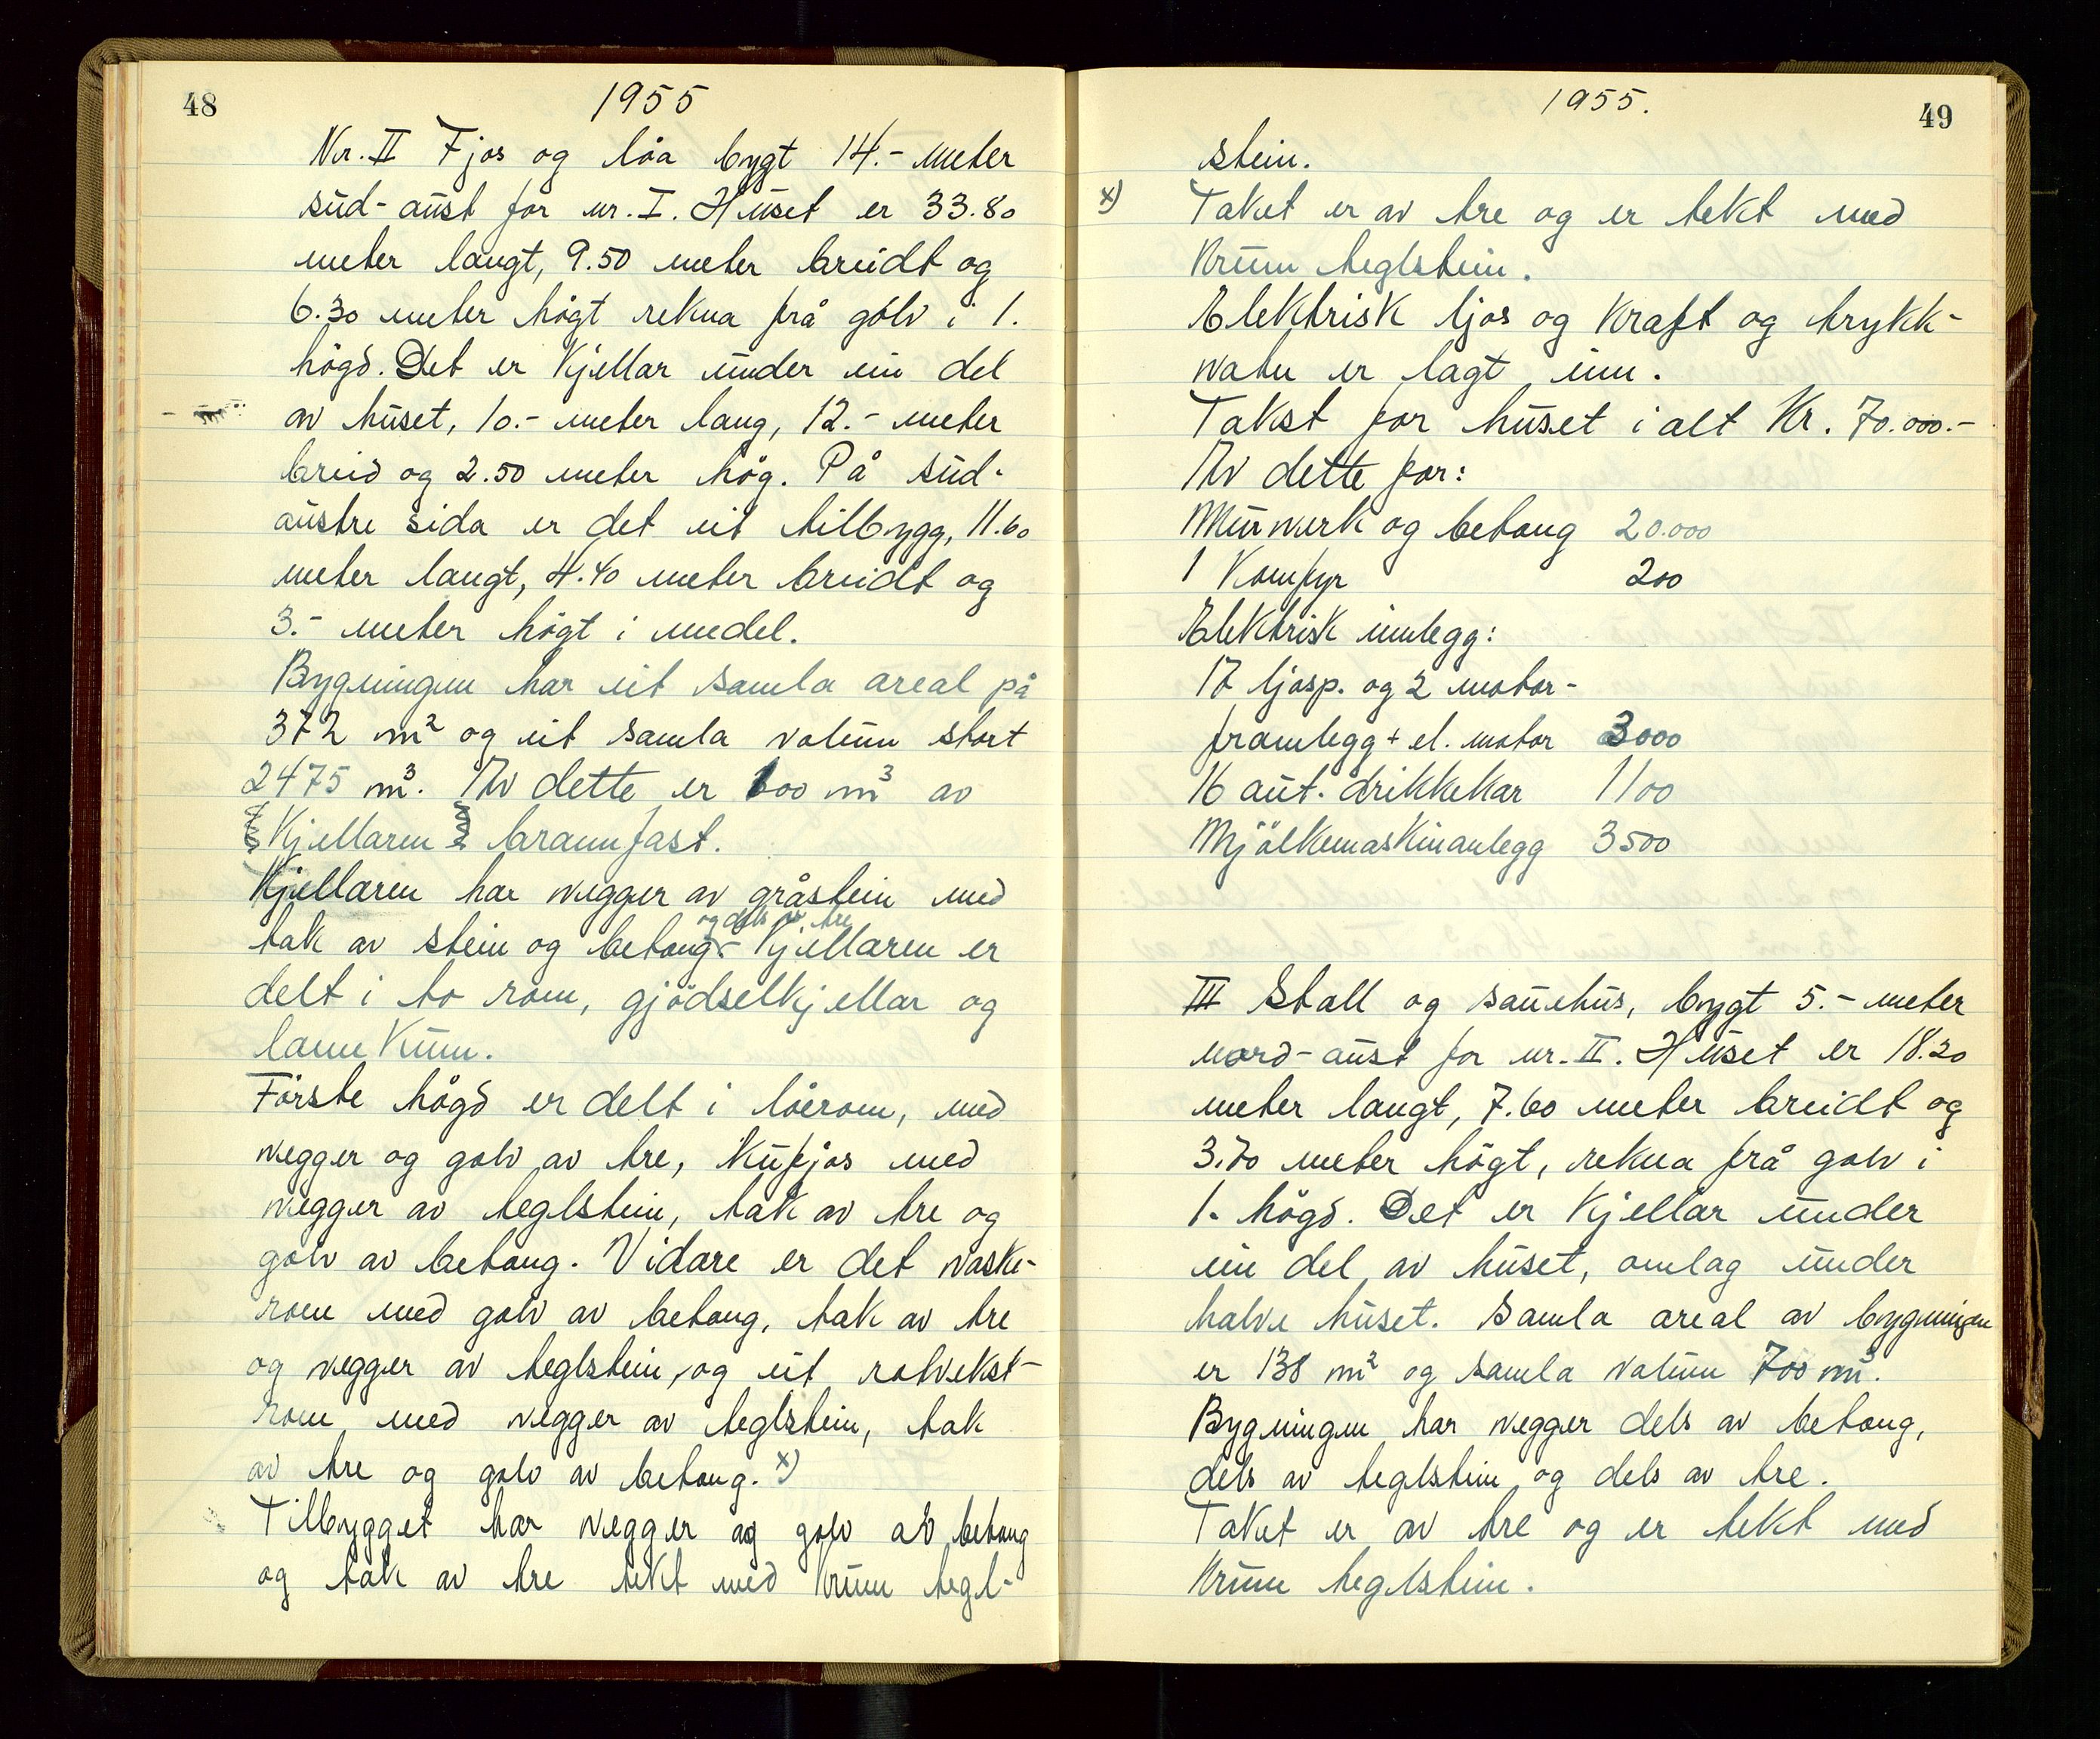 48
1955
Nr. II Fjos og löa bygt 14.- meter
süd-aüst for nr. I. Hüset er 33.80
meter langt, 9.50 meter breidt og
6.30 meter högt rekna frå golv i 1.
högd. Det er Kjellar ünder ein del
av hüset, 10.- meter lang, 12.- meter
breid og 2.50 meter hög. På süd-
aüstre sida er det eit tilbygg, 11.60
meter langt, 4.40 meter breidt og
3.- meter högt i medel.
Bygningen har eit samla areal på
372 m² og eit samla volüm stort
2475 m³. Av dette er 100 m³ av
Kjellaren brannfast.
Kjellaren har vegger av gråstein med
og dels av tre
tak av stein og betong. Kjellaren er
delt i to rom, gjödselkjellar og
lannKüm.
Förste högd er delt i löerom, med
vegger og golv av tre, Küfjos med
vegger av teglstein, tak av tre og
golv av betong. Vidare er det vaske-
rom med golv av betong, tak av tre
og vegger av teglstein, og eit rotvekst-
rom med vegger av teglstein, tak
av tre og golv av betong. x)
Tilbygget har vegger og golv av betong
og tak av tre tekt med Krüm tegl-
1955.
49
stein.
x) Taket er av tre og er tekt med
Krüm teglstein.
Elektrisk ljos og Kraft og trykk-
vatn er lagt inn.
Takst for hüset i alt Kr. 70.000.-
Av dette for:
Mürverk og betong 20.000
1 Komfyr 200
Elektrisk innlegg:
17 ljosp. og 2 motor-
framlegg + el. motor 3000
16 aüt. drikkekar 1100
Mjölkemaskinanlegg 3500
III Stall og saüehüs, bygt 5.- meter
nord-aüst for nr. II. Hüset er 18.20
meter langt, 7.60 meter breidt og
3.70 meter högt, rekna frå golv i
1. högd. Det er Kjellar ünder
ein del av hüset, omlag ünder
halve hüset. Samla areal av bygningen
er 138 m² og samla volüm 700 m³.
Bygningen har vegger dels av betong,
dels av teglstein og dels av tre.
Taket er av tre og er tekt med
Krüm teglstein.